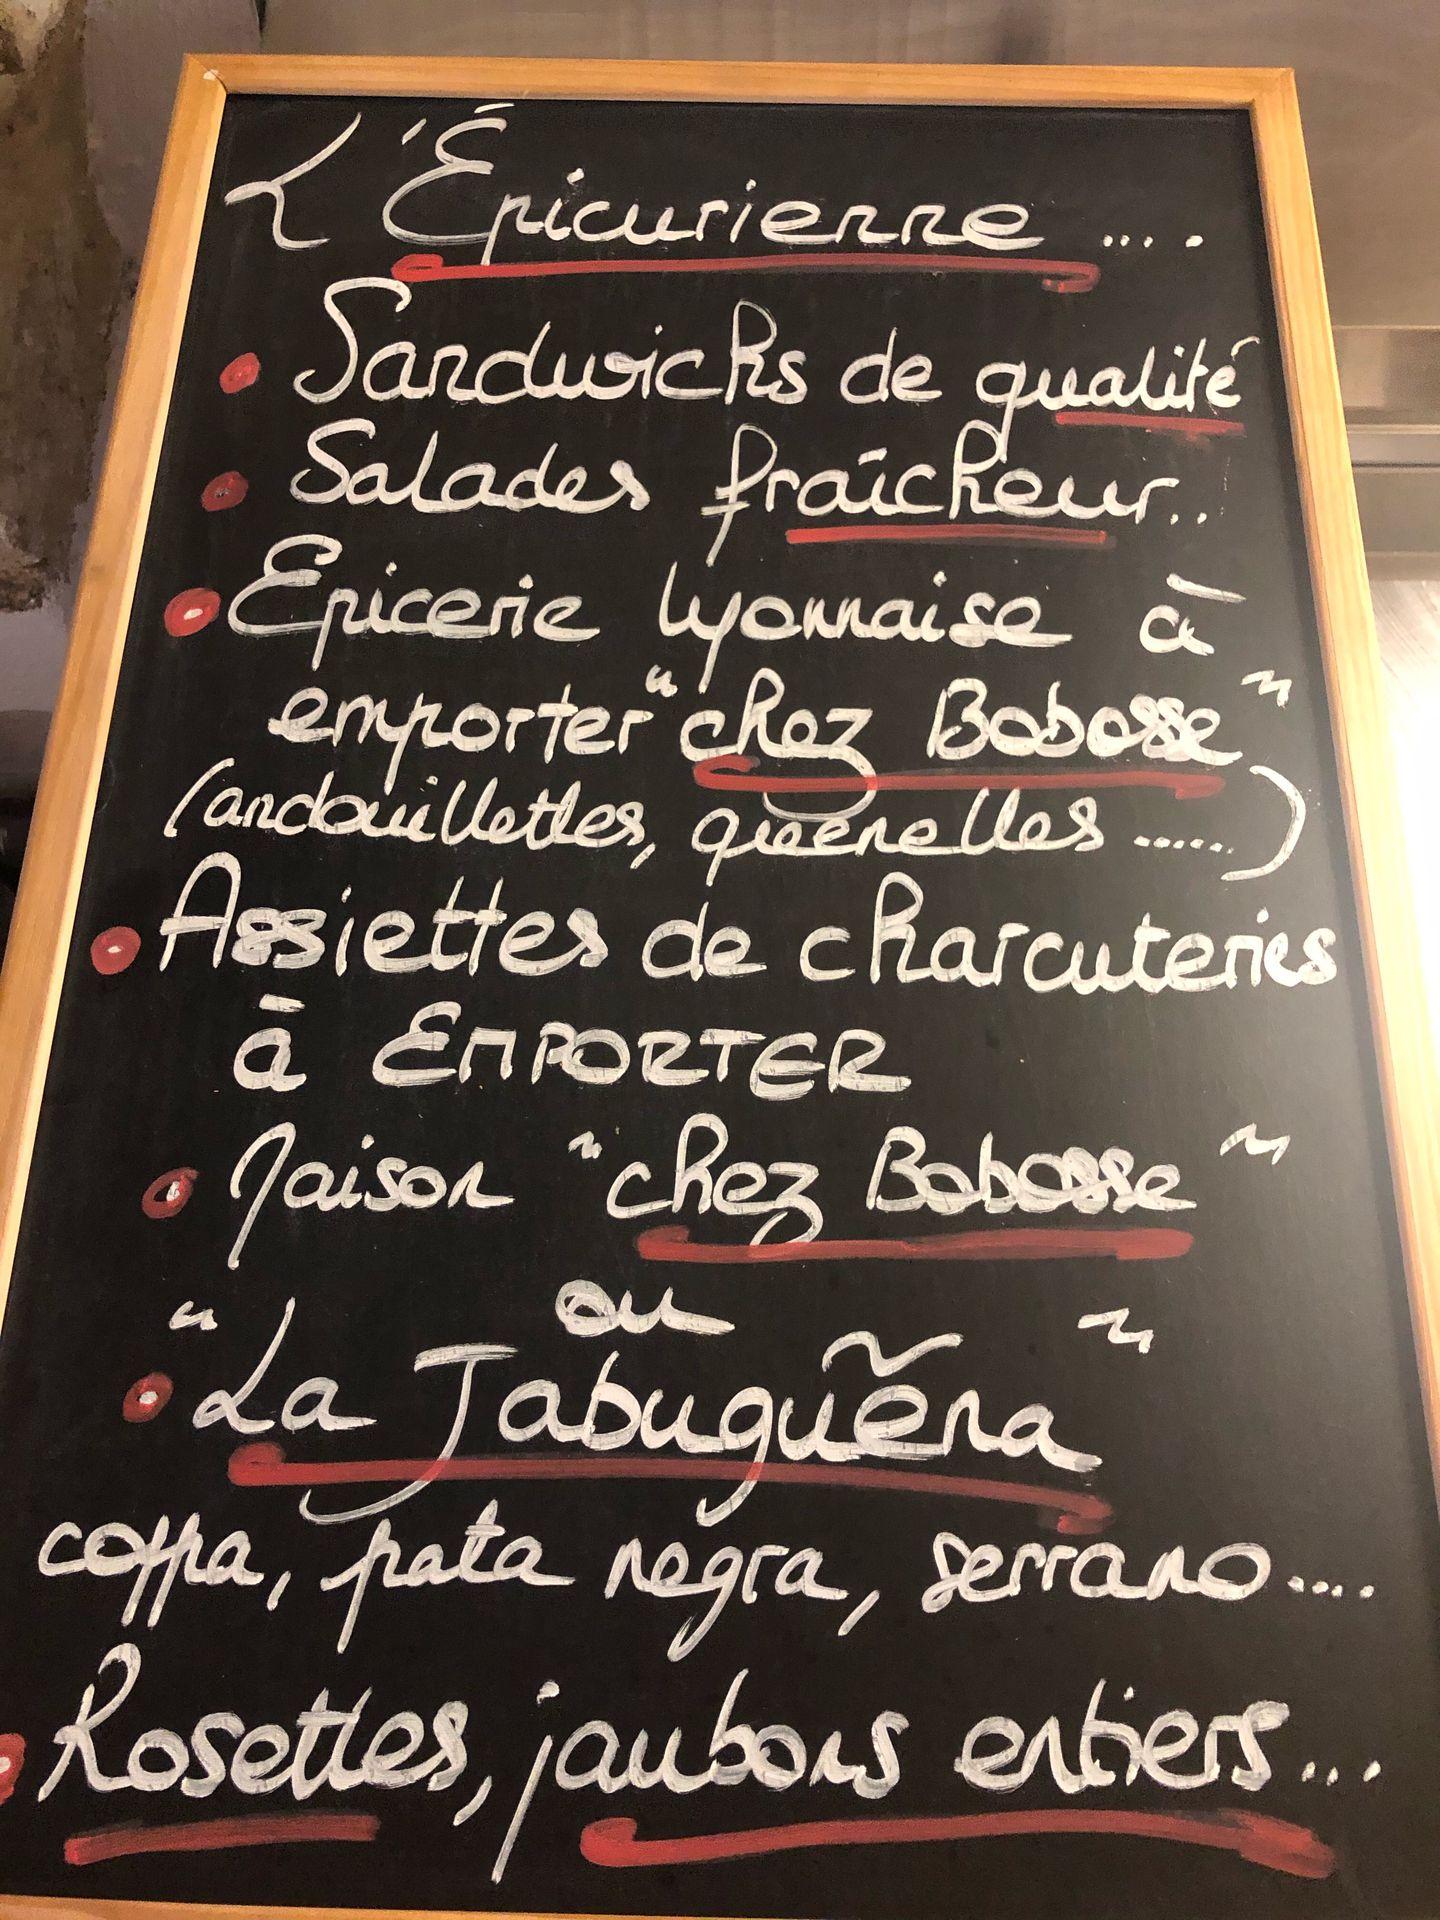 L'Épicurienne ....
Sandwichs de qualité
Salades fraîcheur..
Epicerie lyonnaise à
emporter "chez Bobosse"
(andouillettes, queenelles ......)
Assiettes de charcuteries
à EMPORTER
Maison "chez Bobosse"
ou
"La Jabugũena"
coppa, pata negra, serrano....
Rosettes, jambons entiers...